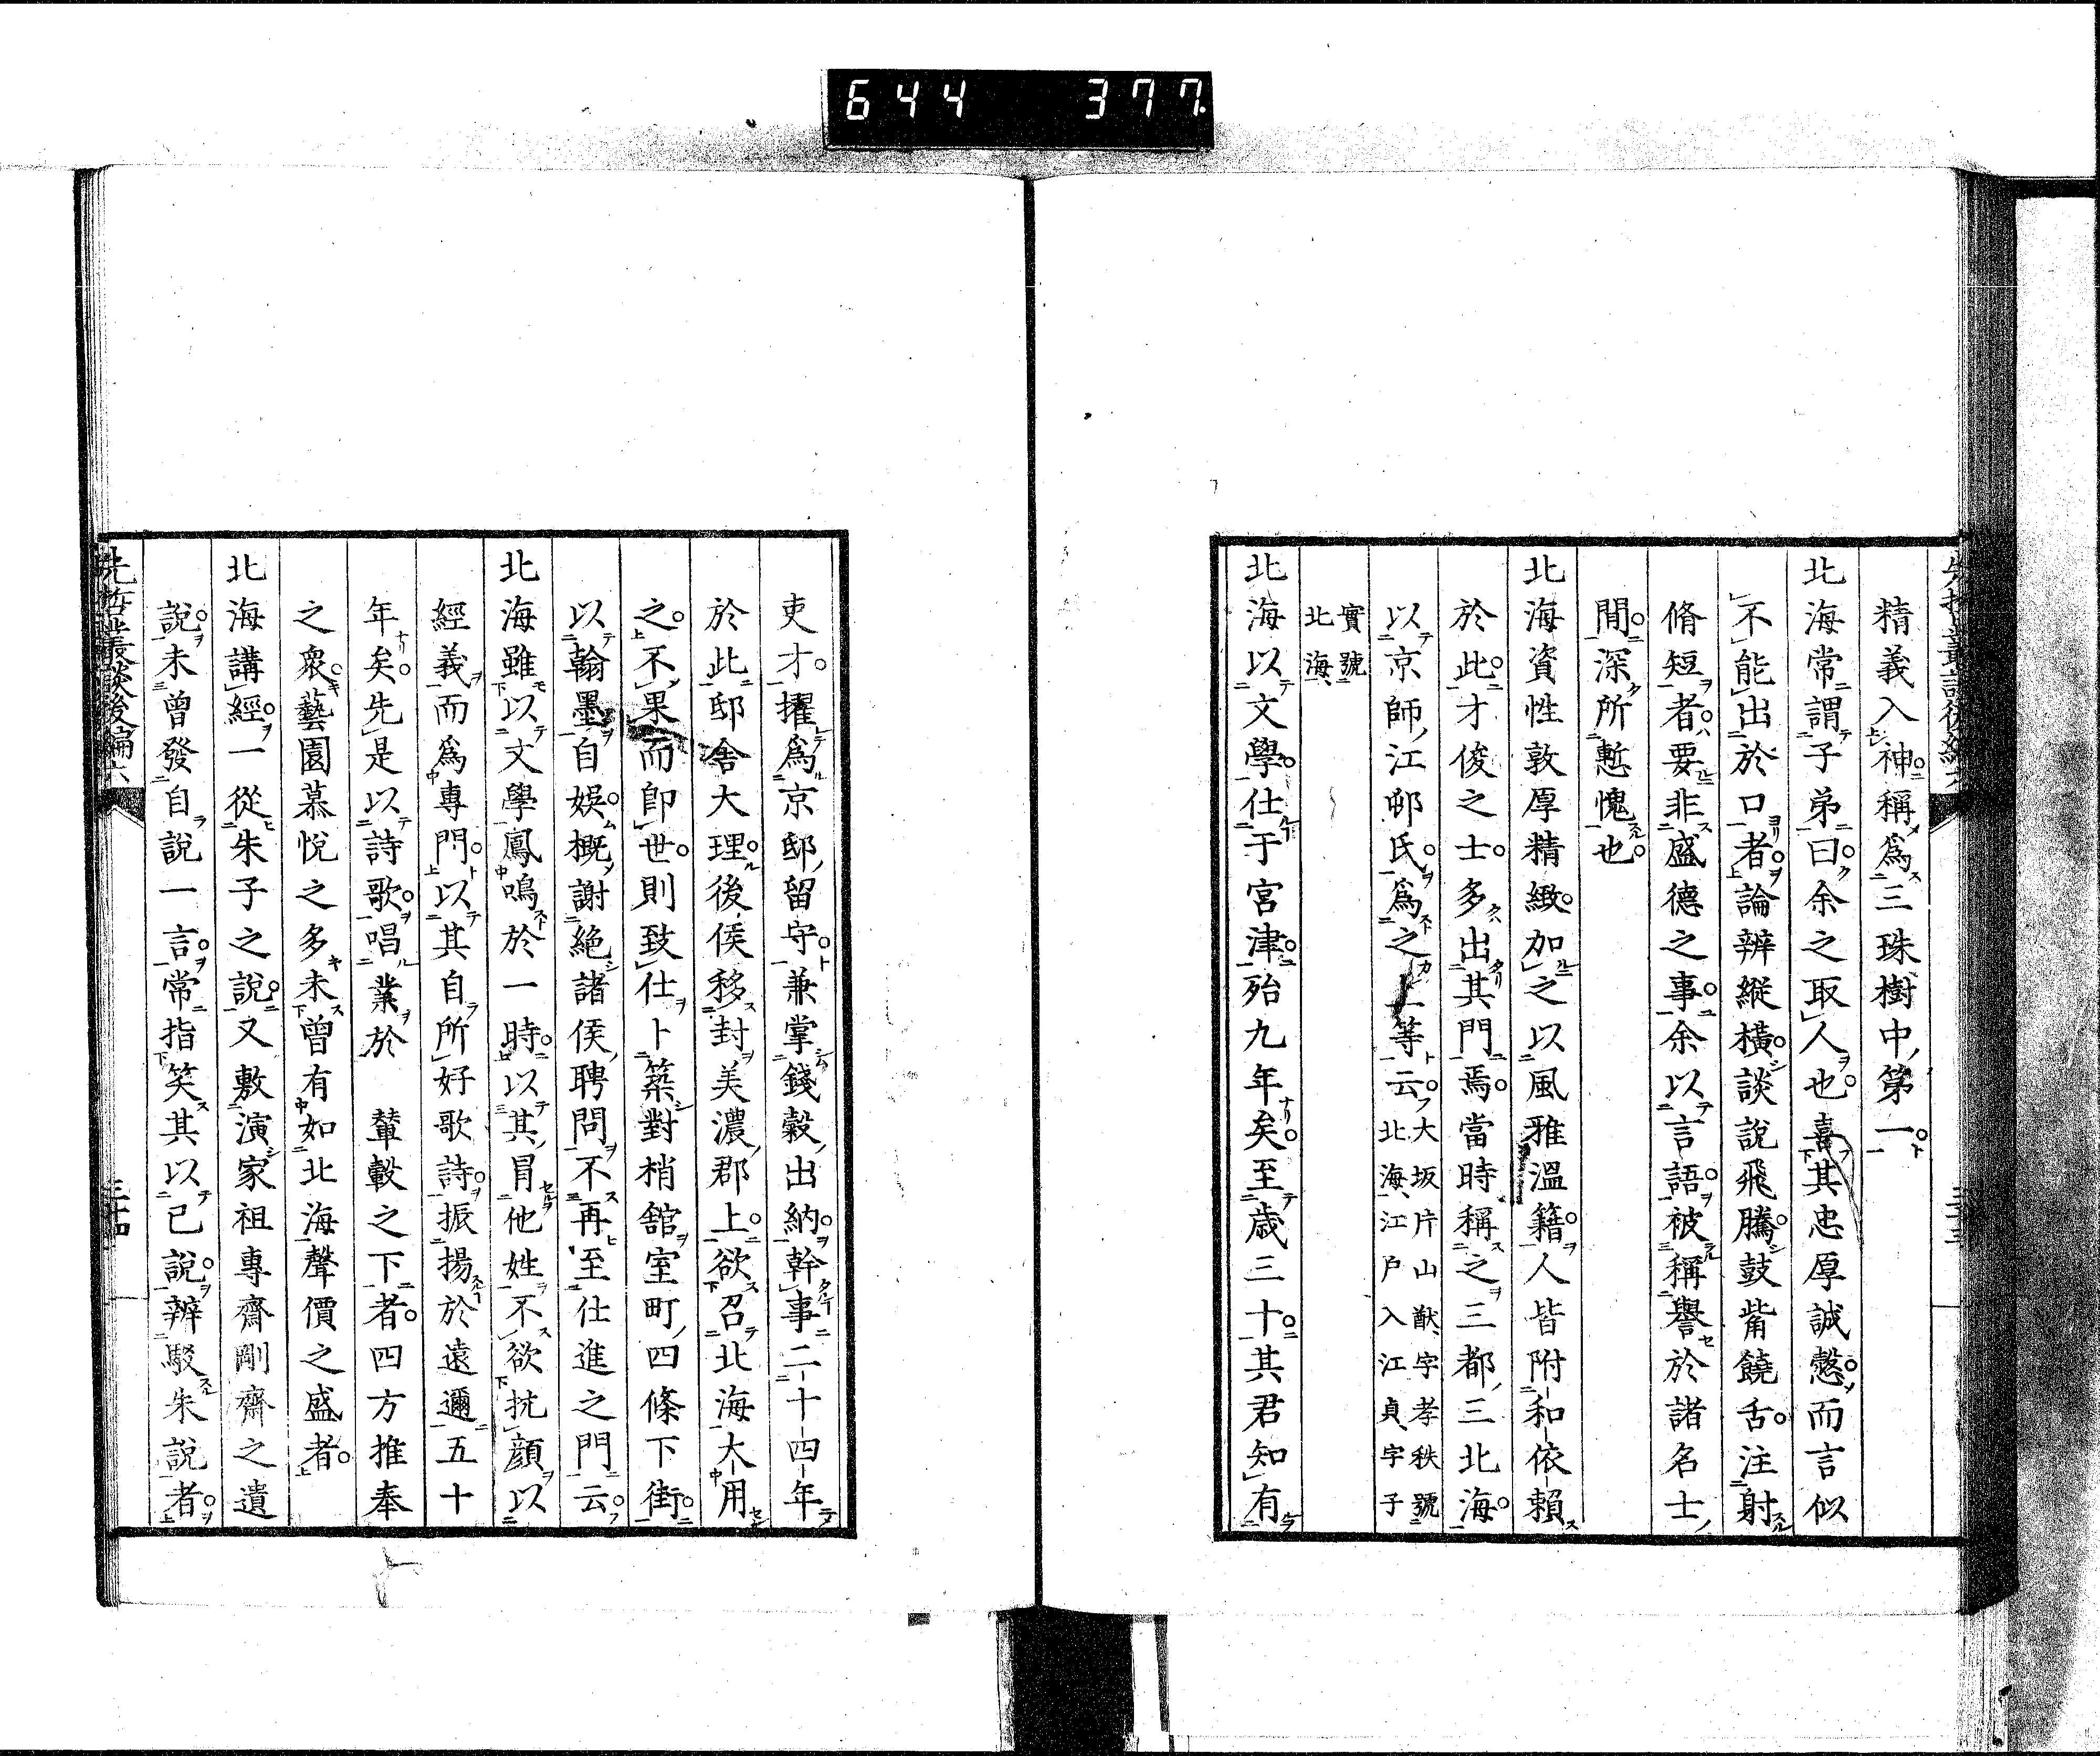 644 377
精義入神稱爲三珠樹中第一
北海常謂子弟曰余之取人也喜其忠厚誠愨而言似
不能出於口者論辨縱橫談說飛騰鼓觜饒舌注射
脩短者要非盛德之事余以言語被稱譽於諸名士
間深所慙愧也
北海資性敦厚精緻加之以風雅溫籍人皆附和依賴
於此才俊之士多出其門焉當時稱之三都三北海
以京師江邨氏爲之上等云大坂片山猷字孝秩號
北海江戶入江貞字子
實號
北海
北海以文學仕于宮津殆九年矣至歲三十其君知有
吏才擢爲京邸留守兼掌錢穀出納幹事二十四年
於此邸舍大理後侯移封美濃郡上欲召北海大用
之不果而卽世則致仕卜築對梢館室町四條下街
以翰墨自娛概謝絕諸侯聘問不再至仕進之門云
北海雖以文學鳳鳴於一時以其冒他姓不欲抗顏以
經義而爲專門以其自所好歌詩振揚於遠邇五十
年矣先是以詩歌唱業於 輦轂之下者四方推奉
之衆藝園慕悅之多未曾有如北海聲價之盛者
北海講經一從朱子之說又敷演家祖專齋剛齋之遺
說未曾發自說一言常指笑其以己說辨駁朱說者
先哲叢談後編六
三十四